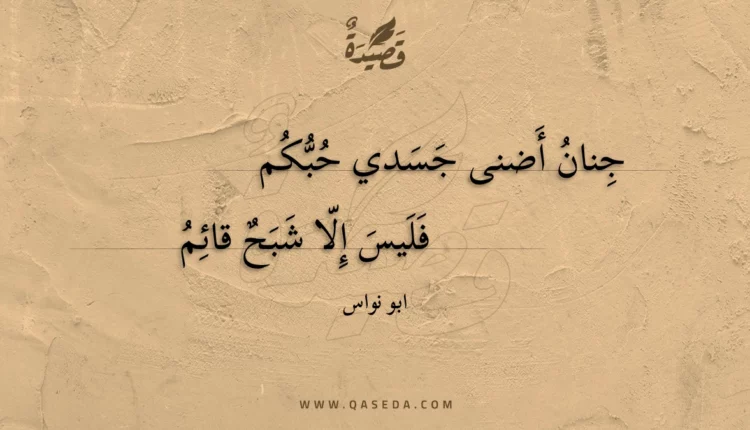 قَصِيْدَةٌ
جِنانُ أَضنى جَسَدي حُبُّكُم
فَلَيسَ إِلّا شَبَحٌ قائِمُ
ابو نواس
WWW.QASEDA.COM